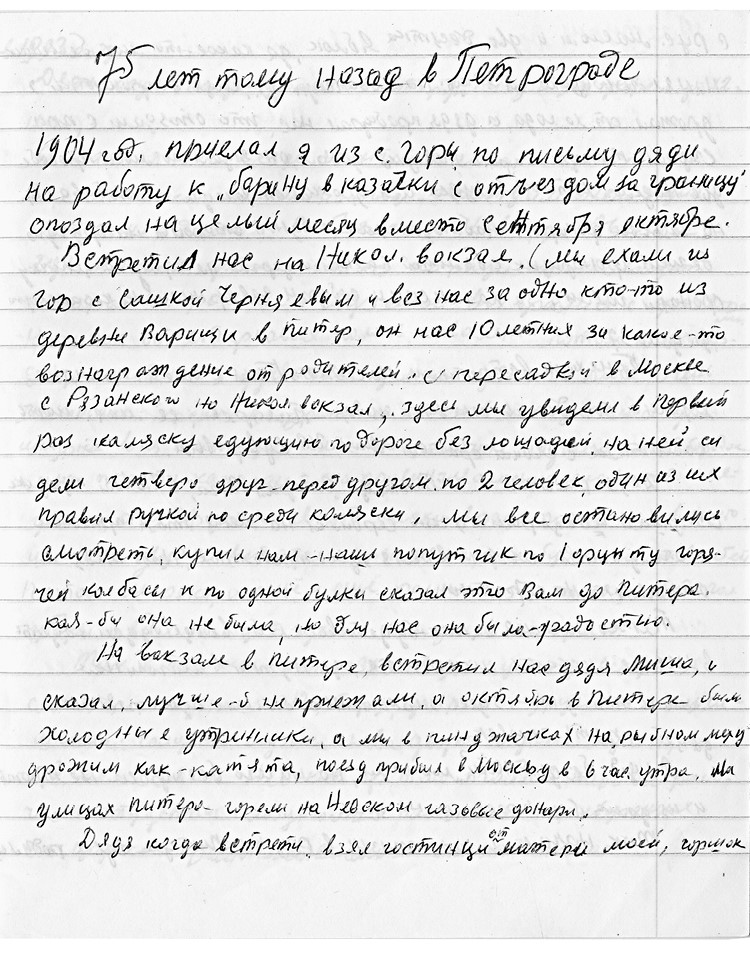 75 лет тому назад в Петрограде
1904 год, приехал я из с. Горы, по письму дяди
на работу к „барину в казачки с отъездом за границу"
опоздал на целый месяц вместо сентября октябре.
Встретил нас на Никол. вокзал. (мы ехали из
гор с Сашкой Черняевым и вез нас за одно кто-то из
деревни Варищи в питер, он нас 10 летних за какое-то
вознаграждение от родителей. с пересадкой в Москве
с Рязанского на Никол. вокзал, здесь мы увидели в первый
раз каляску едующию по дороге без лошадей, на ней си
дели четверо друг-перед другом. по 2 человек, один из их
правил ручкой по среди коляски, мы все остановились
смотреть, купил нам-наш попутчик по 1 фунту горя-
чей колбасы и по одной булки сказал этго вам до питера.
кая-бы она не была, но для нас она была-радостию.
На вокзале в питере, встретил нас дядя Миша, и
сказал, лучше-б не приежали, а октябрь в Питере были
холодные утринники, а мы в пинджачках на рыбном меху
дрожим как-катята, поезд прибыл в Москву в 6 час утра, На
улицах питера- горели на Невском газовые фонари.
Дядя когда встрети, взял гостинци от матери моей, горшок